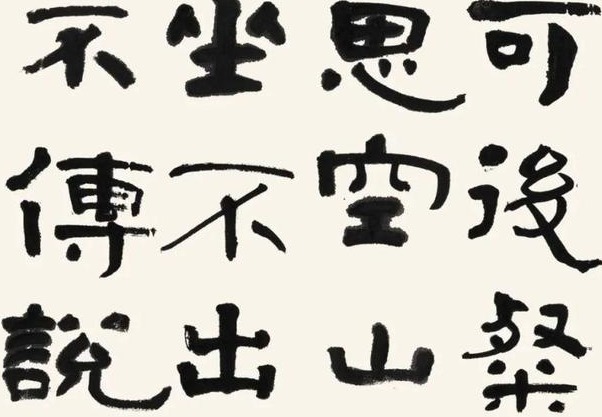 可後粲
思空山
坐不出
不傳說